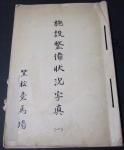 施設整備状況写真(一)
黒松競馬場